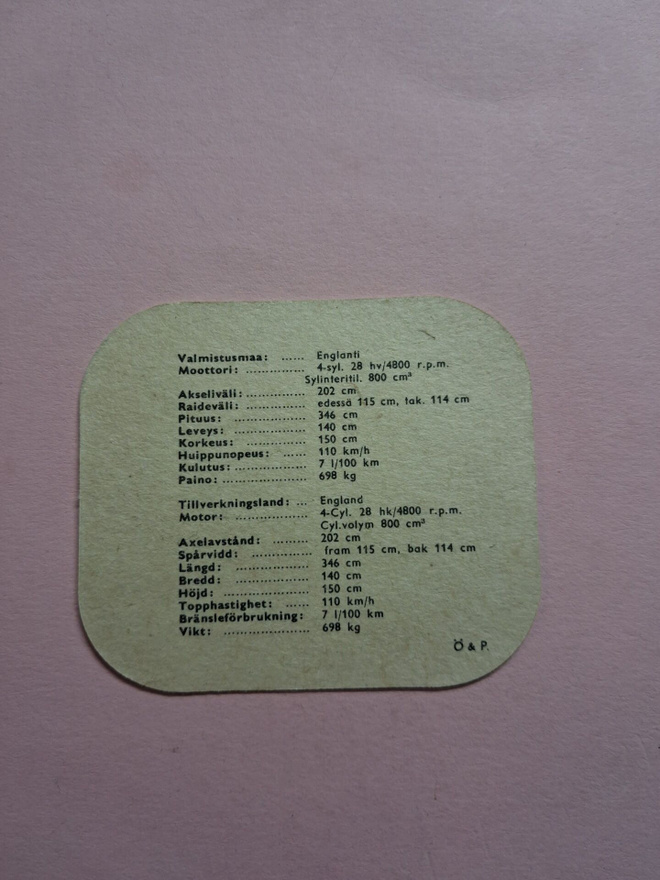 Valmistusmaa: ...... Englanti
Moottori: ............... 4-syl. 28 hv/4800 r.p.m.
Sylinteritil. 800 cm³
Akseliväli: ............... 202 cm
Raideväli: ............... edessä 115 cm, tak. 114 cm
Pituus: .................. 346 cm
Leveys: .................. 140 cm
Korkeus: ............... 150 cm
Huippunopeus: ...... 110 km/h
Kulutus: .................. 7 l/100 km
Paino: ..................... 698 kg
Tillverkningsland: ... England
Motor: .................. 4-Cyl. 28 hk/4800 r.p.m.
Cyl.volym 800 cm³
Axelavstånd: ......... 202 cm
Spårvidd: ............... fram 115 cm, bak 114 cm
Längd: .................. 346 cm
Bredd: .................. 140 cm
Höjd: ..................... 150 cm
Topphastighet: ...... 110 km/h
Bränsleförbrukning: 7 l/100 km
Vikt: ..................... 698 kg
Ö & P.